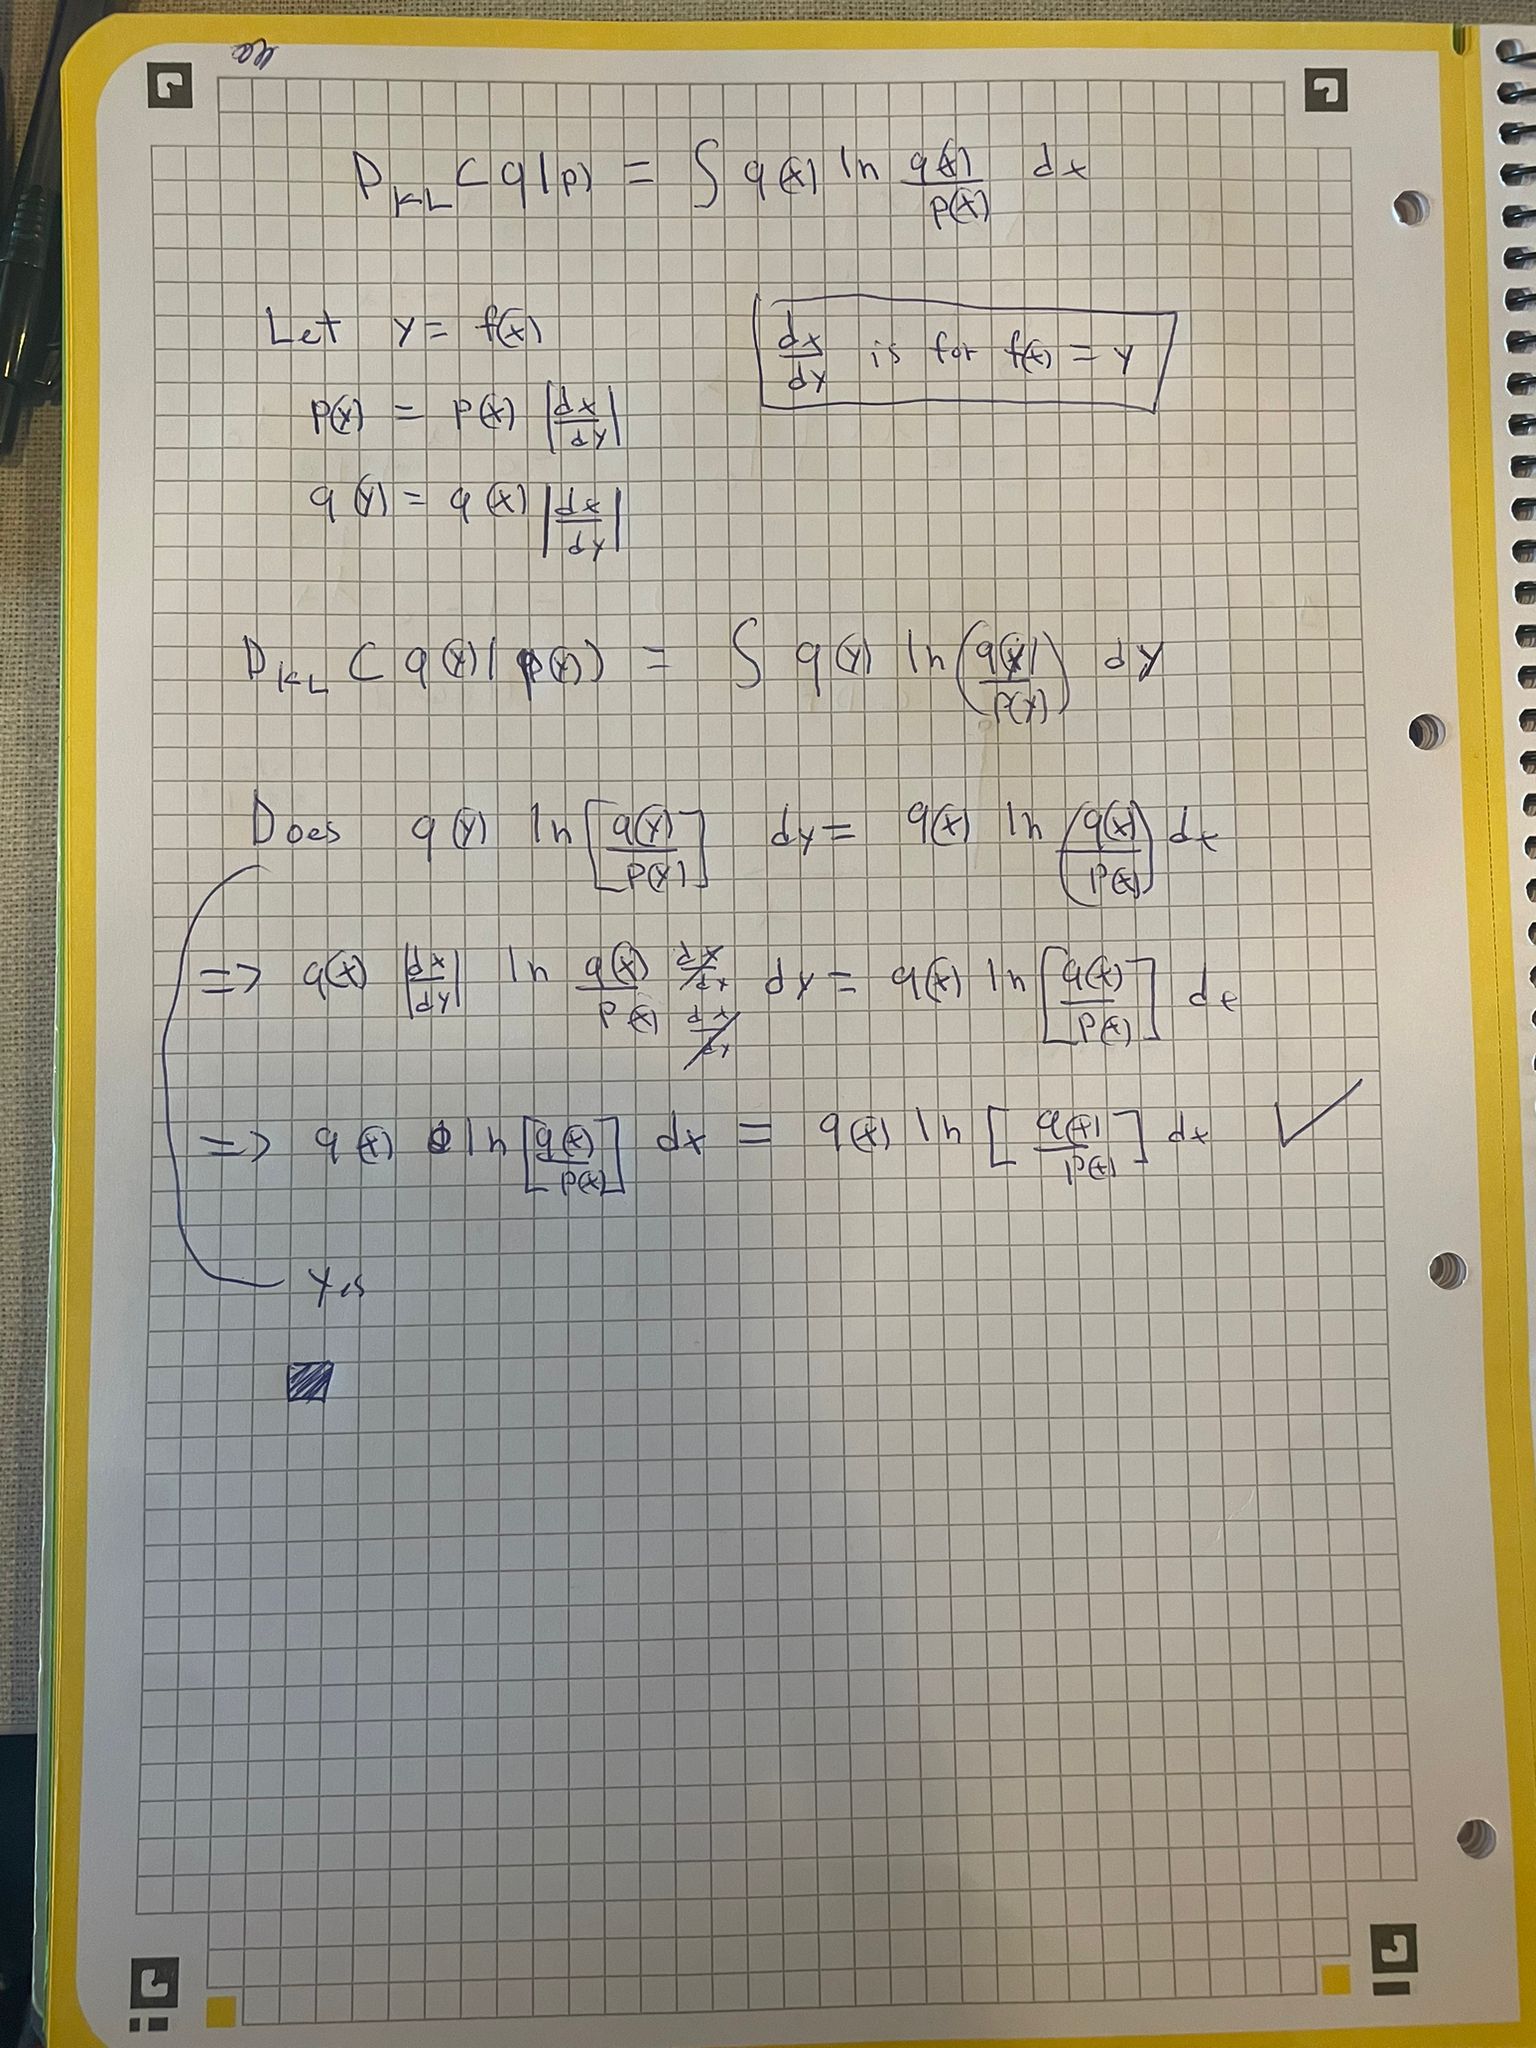 D_KL (q|p) = ∫ q(x) ln q(x)/p(x) dx
Let y = f(x)
dx/dy is for f(x) = y
p(y) = p(x) |dx/dy|
q(y) = q(x) |dx/dy|
D_KL (q(y)|p(y)) = ∫ q(y) ln(q(y)/p(y)) dy
Does q(y) ln[q(y)/p(y)] dy = q(x) ln(q(x)/p(x)) dx
=> q(x) |dx/dy| ln q(x)/p(x) dy = q(x) ln[q(x)/p(x)] dx
=> q(x) ln[q(x)/p(x)] dx = q(x) ln[q(x)/p(x)] dx ✓
Yes